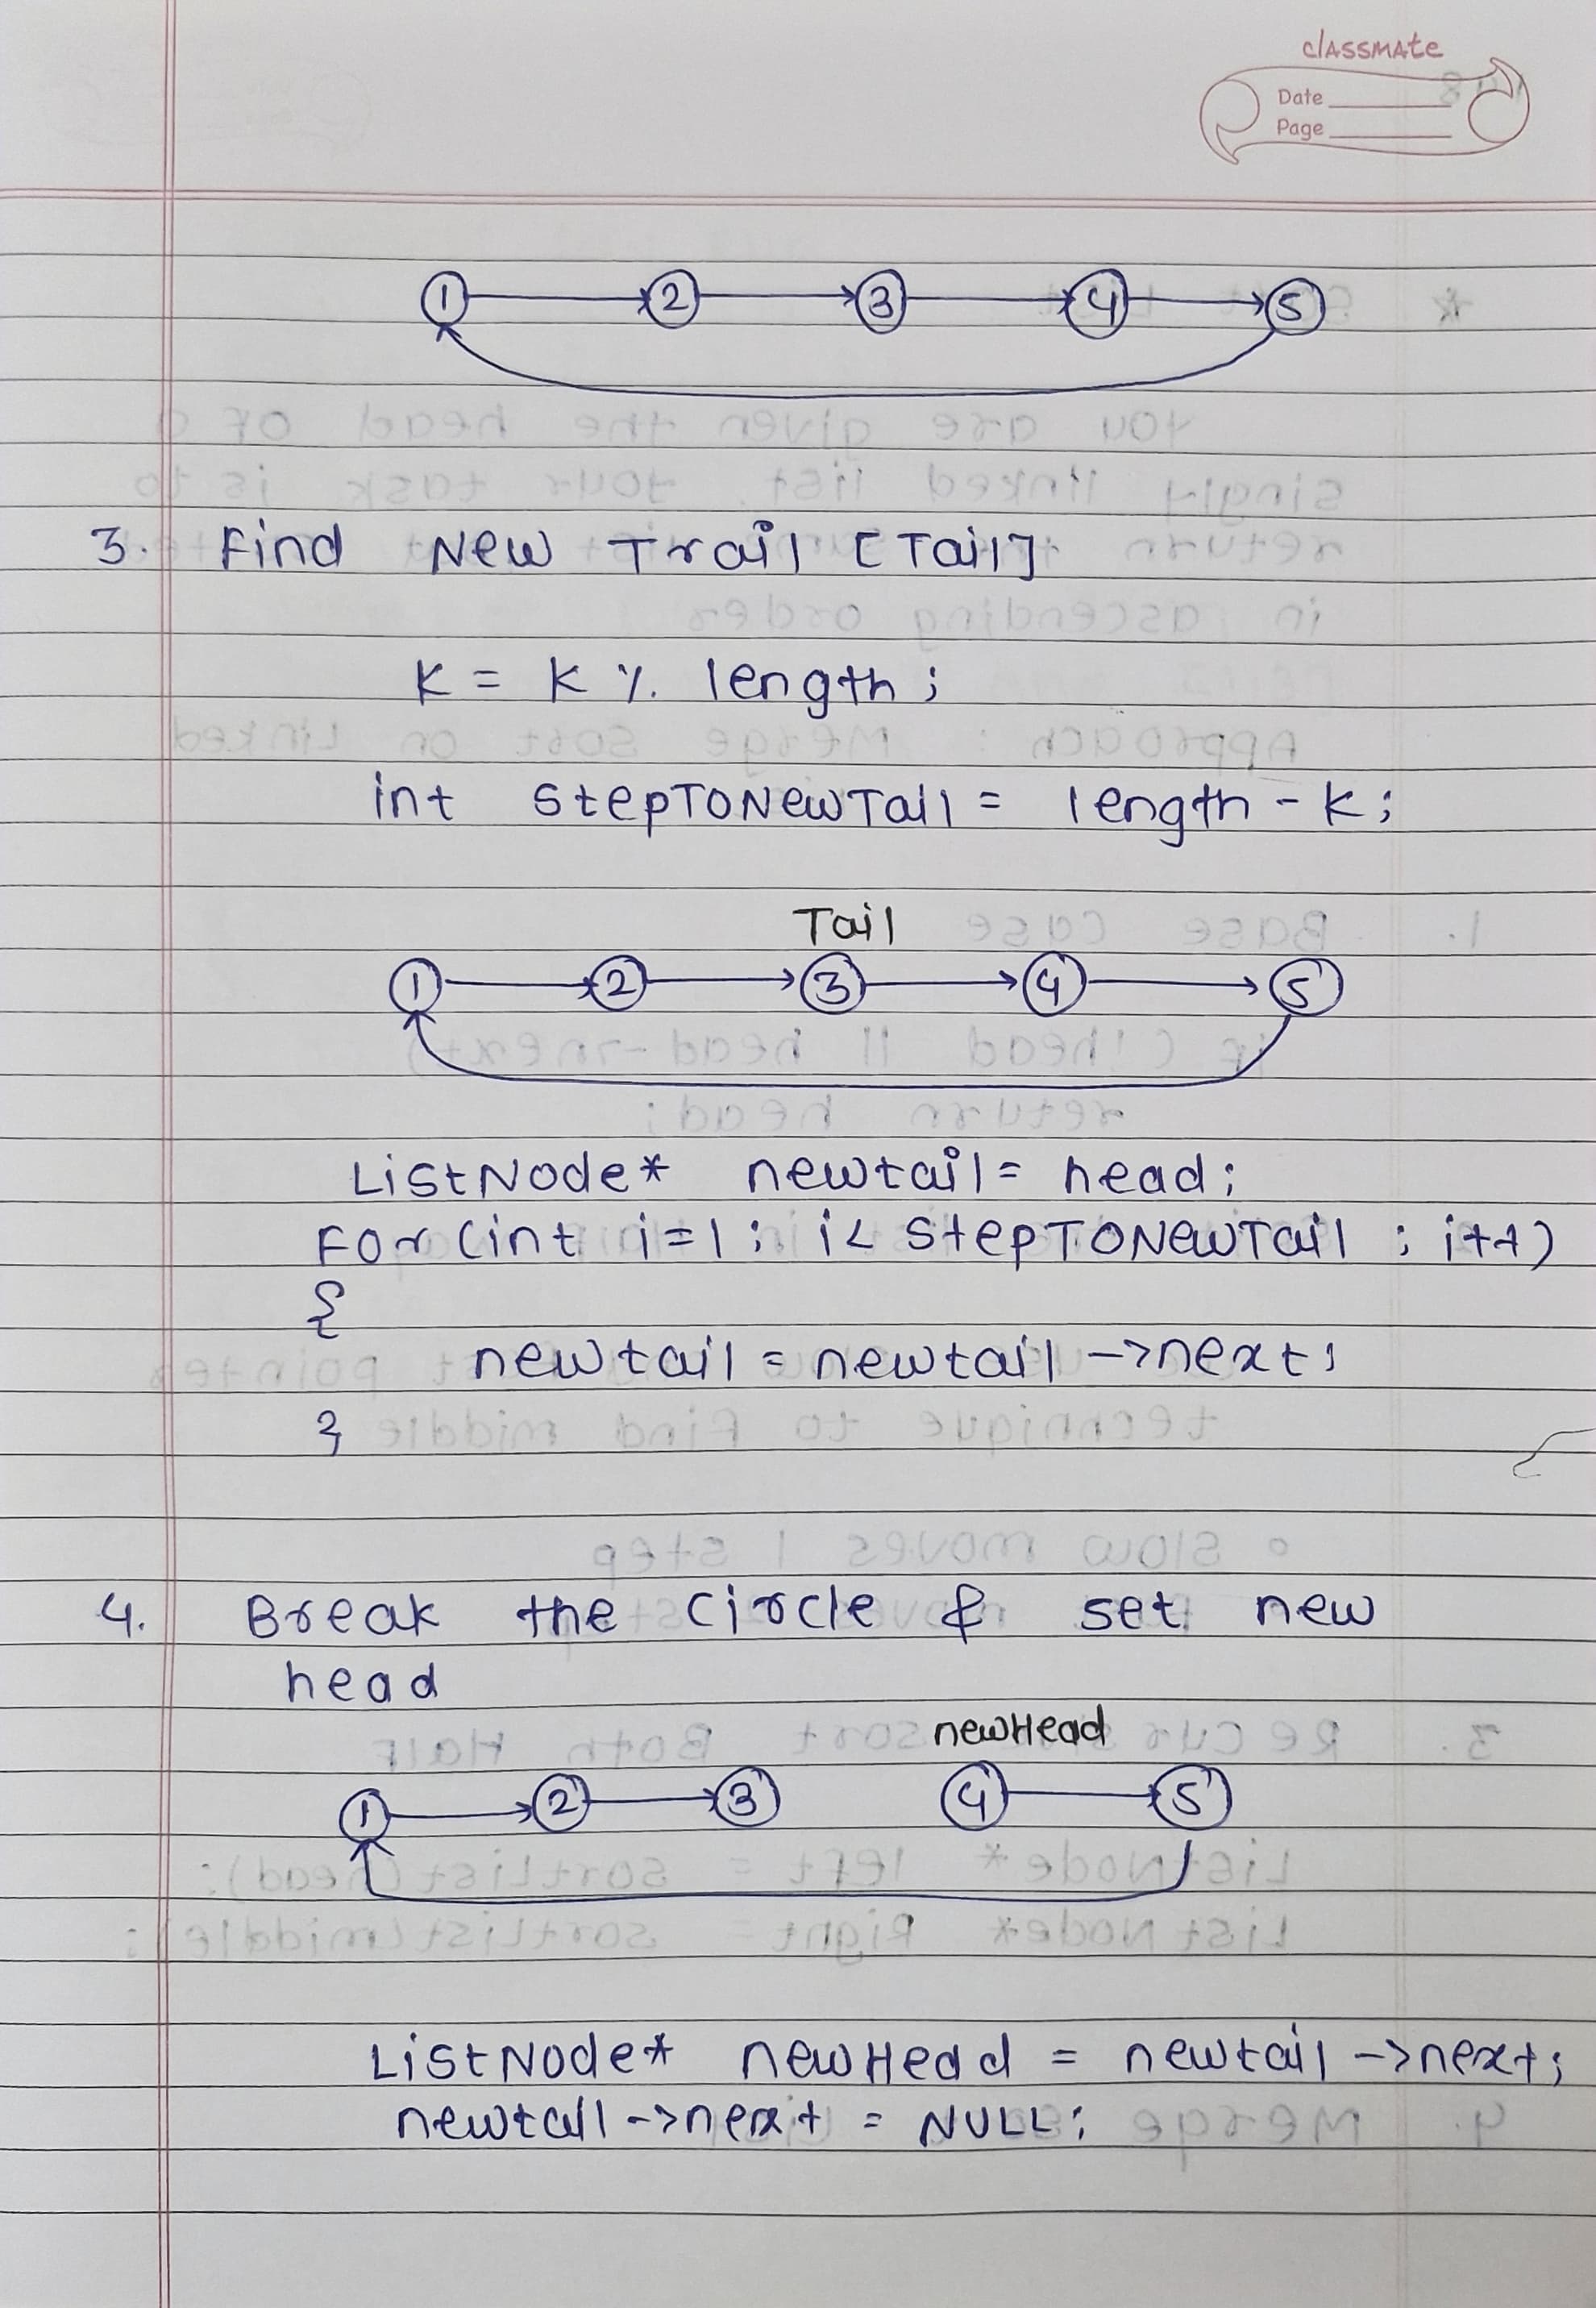 classmate
Date
Page
1 2 3 4 5
3. Find New Trail [Tail]
K = K % length;
int stepToNewTail = length - K;
Tail
1 2 3 4 5
ListNode* newtail = head;
For (int i=1; i< stepToNewTail ; i++)
{
newtail = newtail ->next;
}
4. Break the circle & set new
head
newHead
1 2 3 4 5
ListNode* newHead = newtail ->next;
newtail ->next = NULL;